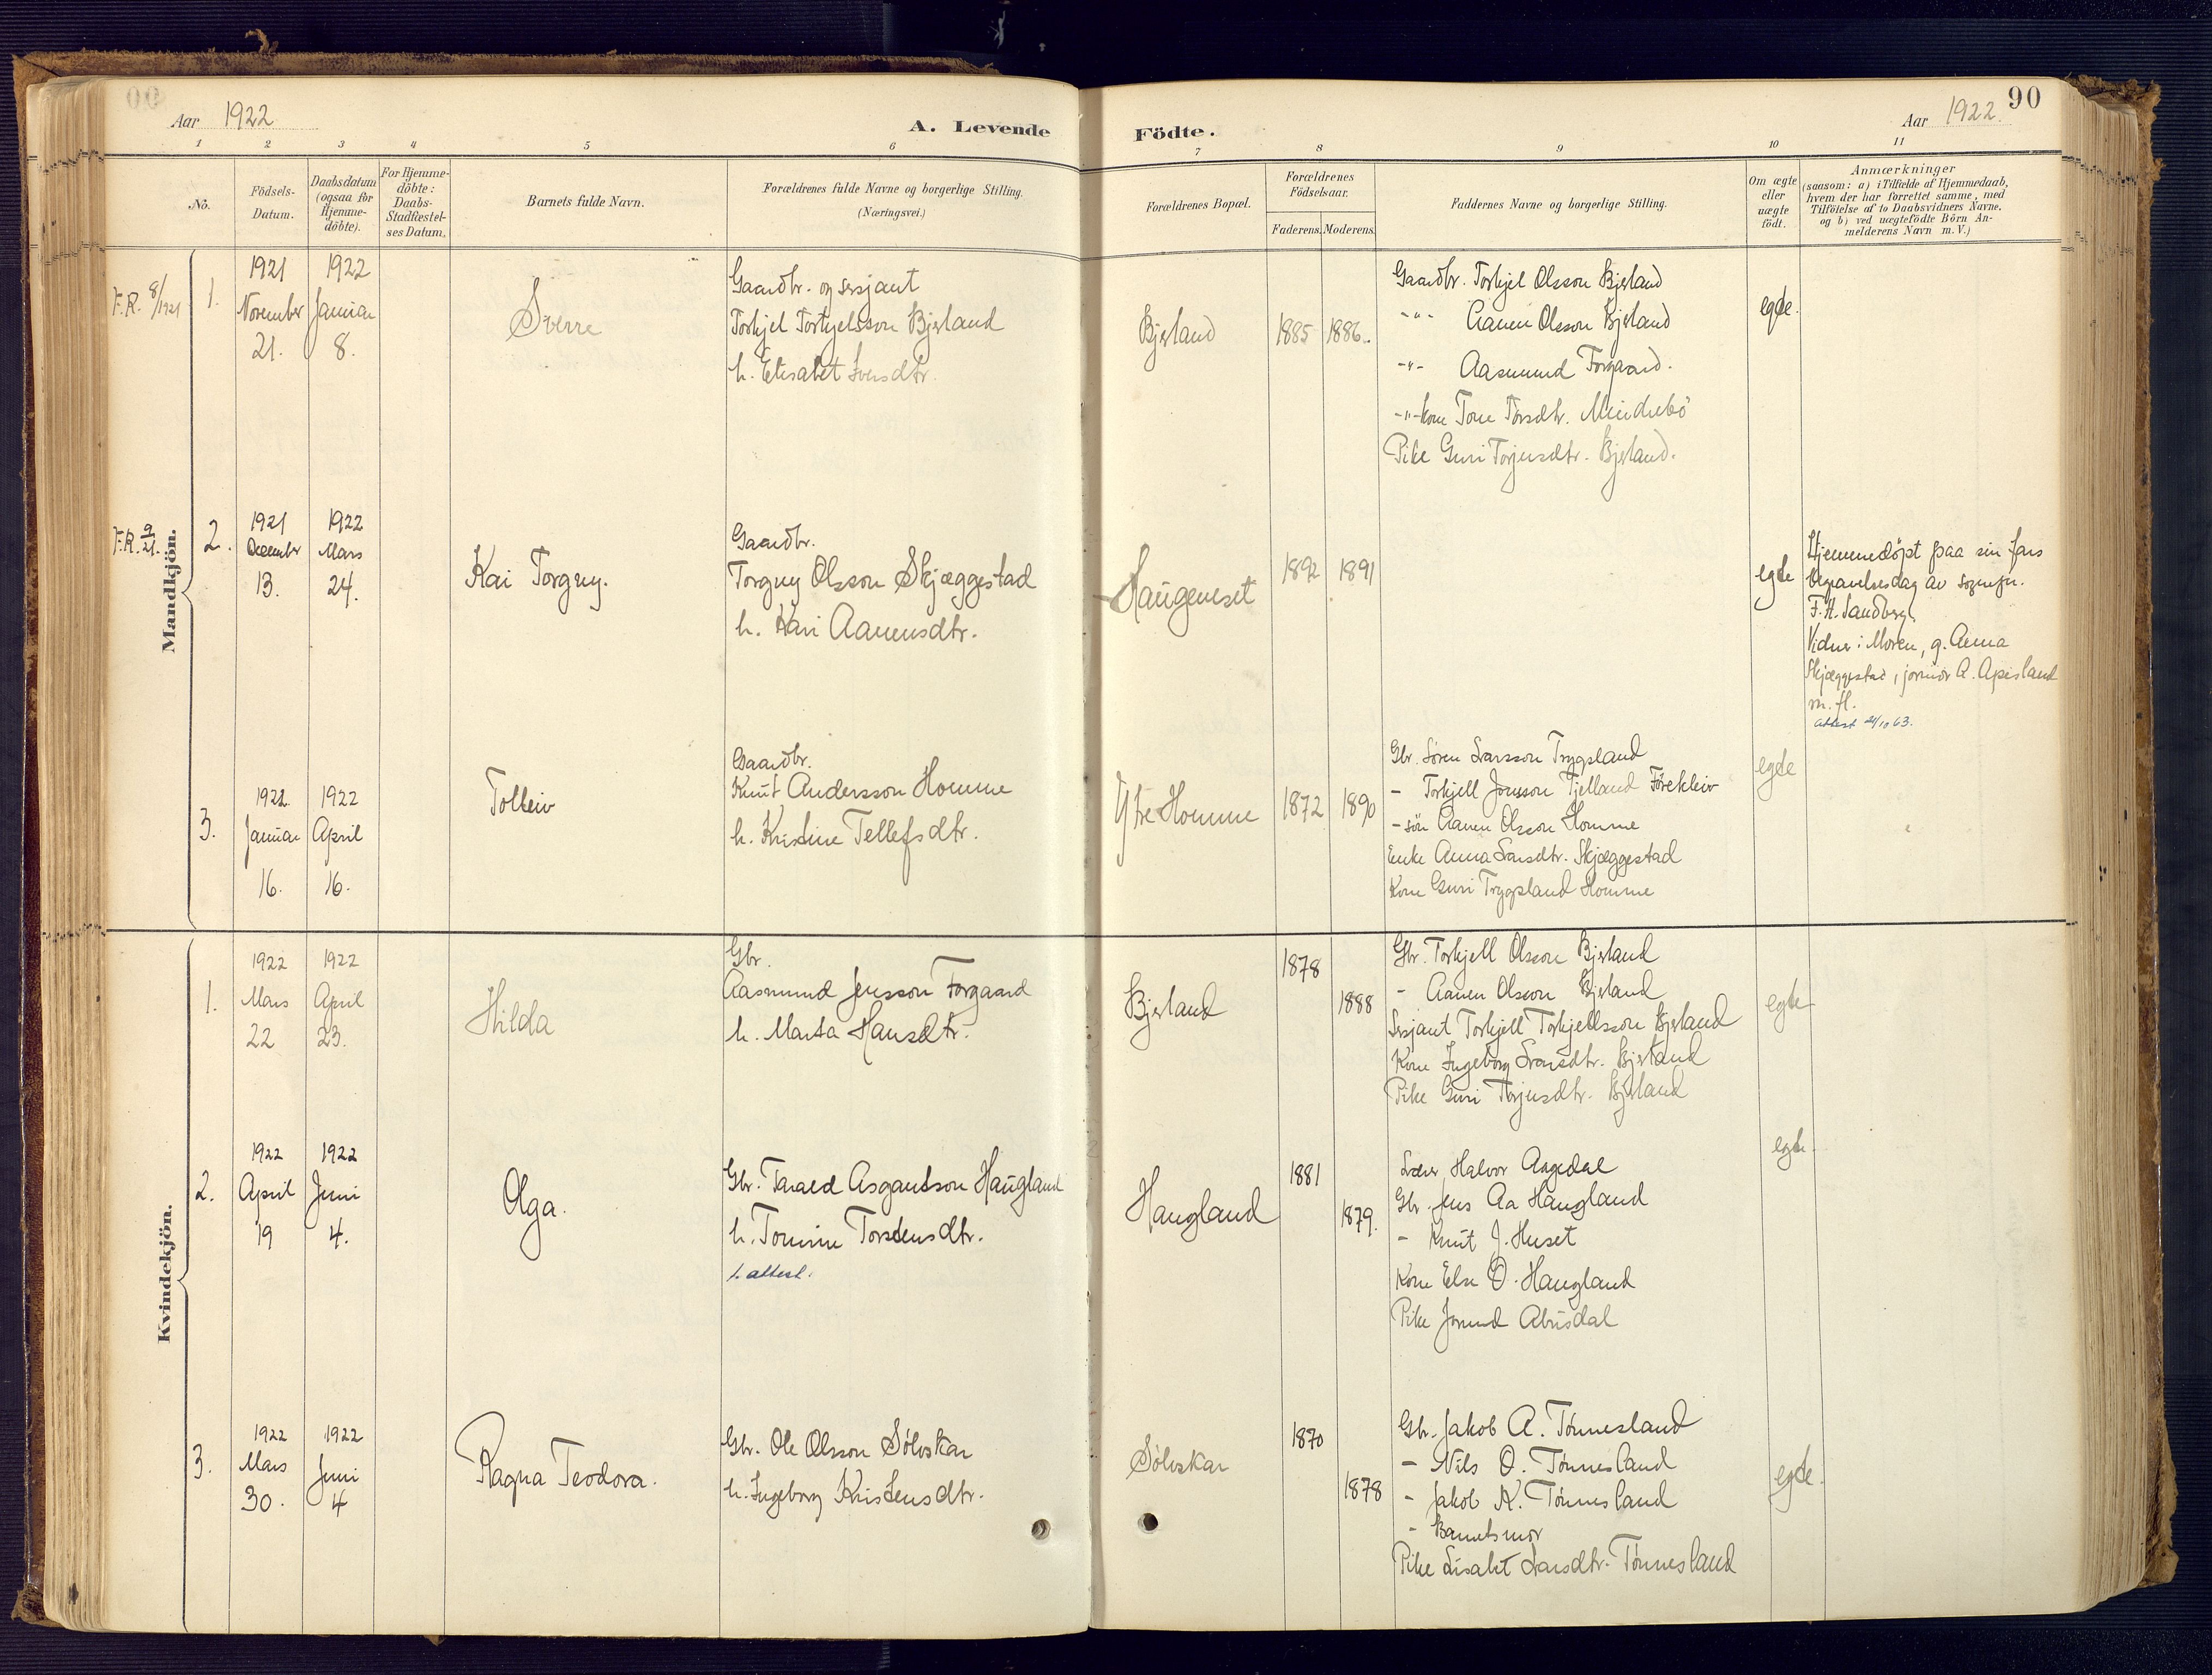 90
Aar 1922
A. Levende
Födte.
Aar 1922.
1 2 3 4 5 6 7 8 9 10 11
No.
Födsels-
Datum.
Daabsdatum
(ogsaa for
Hjemme-
döbte).
For Hjemme-
döbte:
Daabs-
Stadfestel-
ses Datum.
Barnets fulde Navn.
Forældrenes fulde Navne og borgerlige Stilling.
(Næringsvei.)
Forældrenes Bopæl.
Forældrenes
Födselsaar.
Faderens. Moderens.
Faddernes Navne og borgerlige Stilling.
Om ægte
eller
uægte
födt.
Anmærkninger
(saasom: a) i Tilfælde af Hjemmedaab,
hvem der har forrettet samme, med
Tilföielse af to Daabsvidners Navne,
og b) ved uægtefödte Börn An-
melderens Navn m. V.)
Mandkjön.
F.R. 8/1921
1.
1921
November
21.
1922
Januar
8.
Sverre
Gaardbr. og sersjant
Torkjel Torkjelsson Bjerland
h. Elisabet Iversdtr.
Bjerland
1885 1886.
Gaardbr. Torkjel Olsson Bjerland
-"- Aanen Olsson Bjerland
-"- Aasmund Forgaard.
-"- kone Tone Torsdtr. Mindrebö
Pike Guri Torjusdtr. Bjerland.
egte.
F.R. 9/21.
2.
1921
December
13.
1922
Mars
24.
Kai Torguy.
Gaardbr.
Torguy Olsson Skjæggestad
h. Kari Aanensdtr.
Haugeneset
1892 1891
egte
Hjemmedöpt paa sin fars
begravelsesdag av sognepr.
F. H. Sandberg.
Vidner: Moren, g. Anna
Skjæggestad, jormor A. Apesland
m. fl.
attest 24/10 63.
3.
1922
Januar
16.
1922
April
16.
Tolleiv
Gaardbr.
Knut Andersson Homme
h. Kristine Tellefsdtr.
Ytre Homme
1872 1890
Gbr. Sören Larsson Trygsland
- Torkjell Jonsson Tjelland Förekleiv
- sön Aanen Olsson Homme
Enke Anna Larsdtr. Skjæggestad
Kone Guri Trygsland Homme
egte
Kvindekjön.
1.
1922
Mars
22
1922
April
23.
Hilda
Gbr.
Aasmund Jensson Forgaard
h. Marta Hansdtr.
Bjerland
1878
1888
Gbr. Torkjell Olsson Bjerland
- Aanen Olsson Bjerland
Sersjant Torkjell Torkjellsson Bjerland
Kone Ingeborg Larsdtr. Bjerland
Pike Guri Torjusdtr. Bjerland
egte
2.
1922
April
19
1922
Juni
4.
Olga.
Gbr. Tarald Asgautson Haugland
h. Tomine Torstensdtr.
1. attest.
Haugland
1881
1879.
Lærer Halvor Aagedal
Gbr. Jens Aa Haugland
- Knut J. Huset
Kone Else O. Haugland
Pike Jorund Abusdal
egte.
3.
1922
Mars
30.
1922
Juni
4
Ragna Teodora.
Gbr. Ole Olsson Sölvskar
h. Ingeborg Kristensdtr.
Sölvskar
1870
1878
Gbr. Jakob A. Tönnesland
- Nils O. Tönnesland
- Jakob K. Tönnesland
- Barnets mor
Pike Lisabet Larsdtr. Tönnesland
egte.